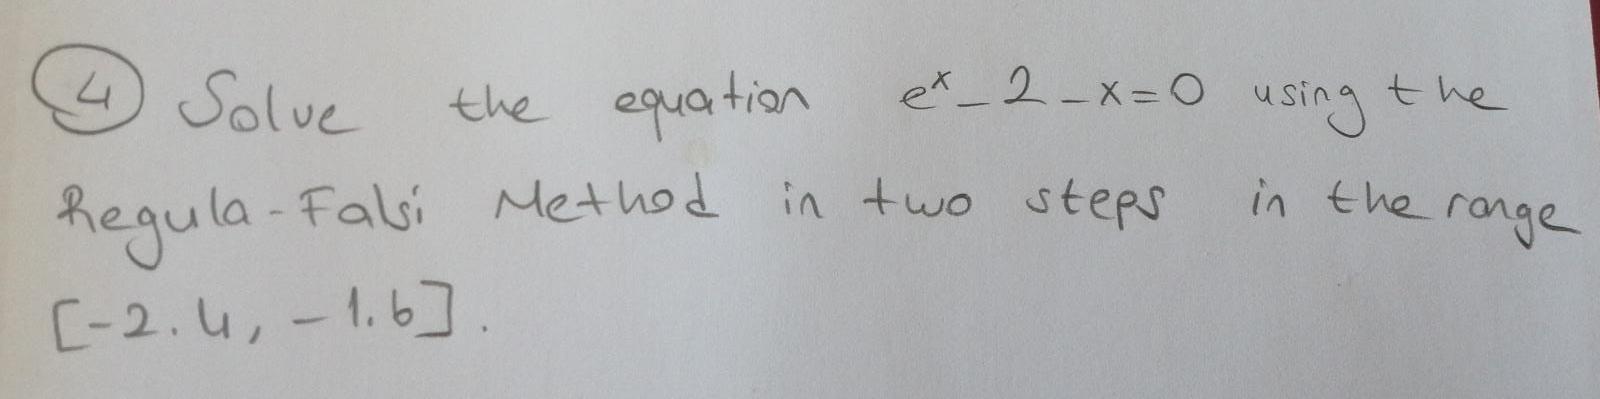 ④ Solve the equation eˣ - 2 - x = 0 using the
Regula-Falsi Method in two steps in the range
[-2.4, -1.6].